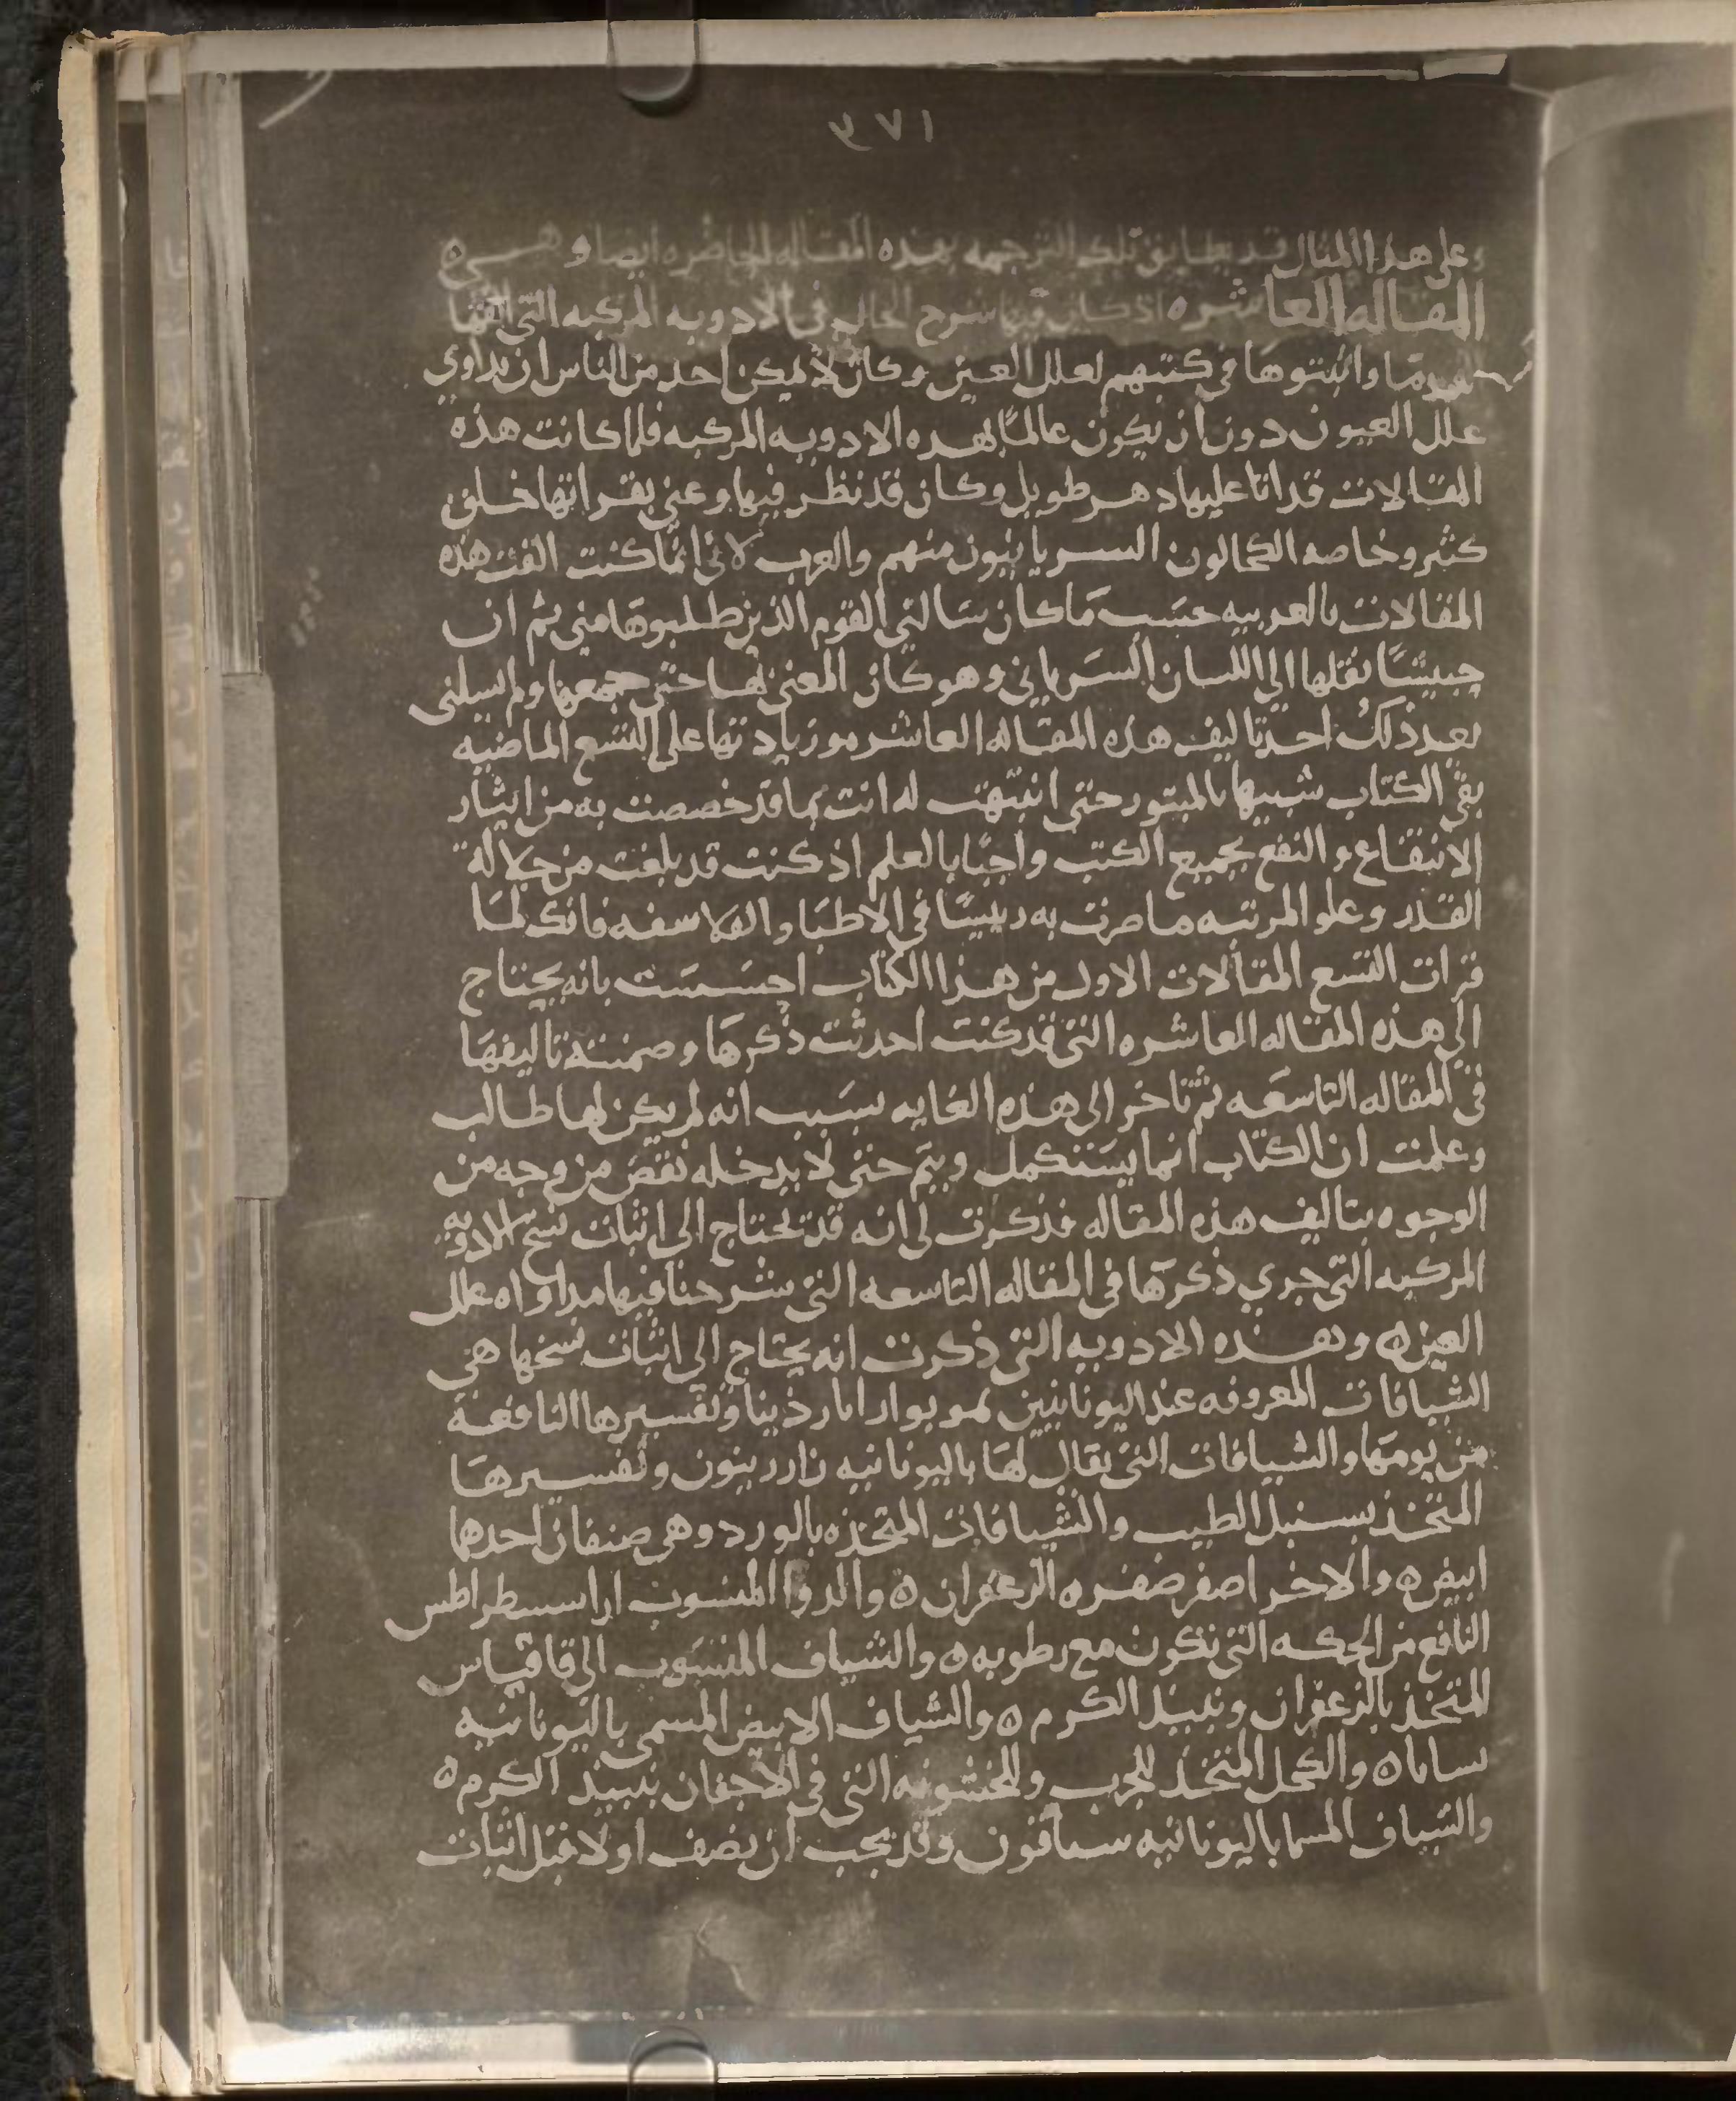 ١٧٤
وعلى هذا المثال قد يطابق تلك الترجمه بهذه المقاله الحاضره ايضا وهـــي ه
المقاله العاشره اذ كان فيها شرح الحال في الادويه المركبه التي الفها
القدما واثبتوها في كتبهم لعلل العين وكان لا يمكن احد من الناس ان يداوي
علل العيون دون ان يكون عالمًا بهذه الادويه المركبه فلما كانت هذه
المقالات قد اتا عليها دهر طويل وكان قد نظر فيها وعني بقراتها خلق
كثير وخاصه الكحالون السريانيون منهم والعرب لاني انما كنت الفت هذه
المقالات بالعربيه حسب ما كان سالني القوم الذين طلبوها مني ثم ان
حبيشًا نقلها الي اللسان السرياني وهو كان المعني بها حتي جمعها ولم يسلني
بعد ذلك احد تاليف هذه المقاله العاشره وزيادتها علي التسع الماضيه
بقي الكتاب شبيها بالمبتور حتي انتبهت له انت بما قد خصصت به من ايثار
الانتفاع والنفع بجميع الكتب واحبابا لعلم اذ كنت قد بلغت من جلاله
القدر وعلو المرتبه ما صرت به رييسًا في الاطبا والفلاسفه فانك لما
قرات التسع المقالات الاول من هذا الكتاب احسست بانه يحتاج
الي هذه المقاله العاشره التي قد كنت احدثت ذكرها وضمنت تاليفها
في المقاله التاسعه ثم تاخر الى هذه الغايه بسبب انه لم يكن لها طالب
وعلمت ان الكتاب انما يستكمل ويتم حتي لا يدخله نقص من وجه من
الوجوه بتاليف هذه المقاله فذكرت لي انه قد تحتاج الي اثبات نسخ الادويه
المركبه التي جري ذكرها في المقاله التاسعه التي شرحنا فيها مداواه علل
العين ه وهذه الادويه التي ذكرت انه يحتاج الي اثبات نسخها هي
الشيافات المعروفه عند اليونانيين بمويوارا نارذينا وتفسيرها النافعة
من يومها والشيافات التي يقال لها باليونانيه ناردينون وتفسيرها
المتخذ بسنبل الطيب والشيافات المتخذه بالورد وهي صنفان احدها
ابيض ه والاخر اصفر صفره الزعفران ه والدوا المنسوب ارا سسطراطس
النافع من الحكه التي تكون مع رطوبه ه والشياف المنسوب الي قاقياس
المتخذ بالزعفران ونبيذ الكرم ه والشياف الابيض المسمي باليونانيه
ساىاىا ه والكحل المتخذ للجرب وللخشونه التي في الاجفان بنبيذ الكرم ه
والشياف المسما باليونانيه سىافون وقد يجب ان نصف اولا قبل اثبات